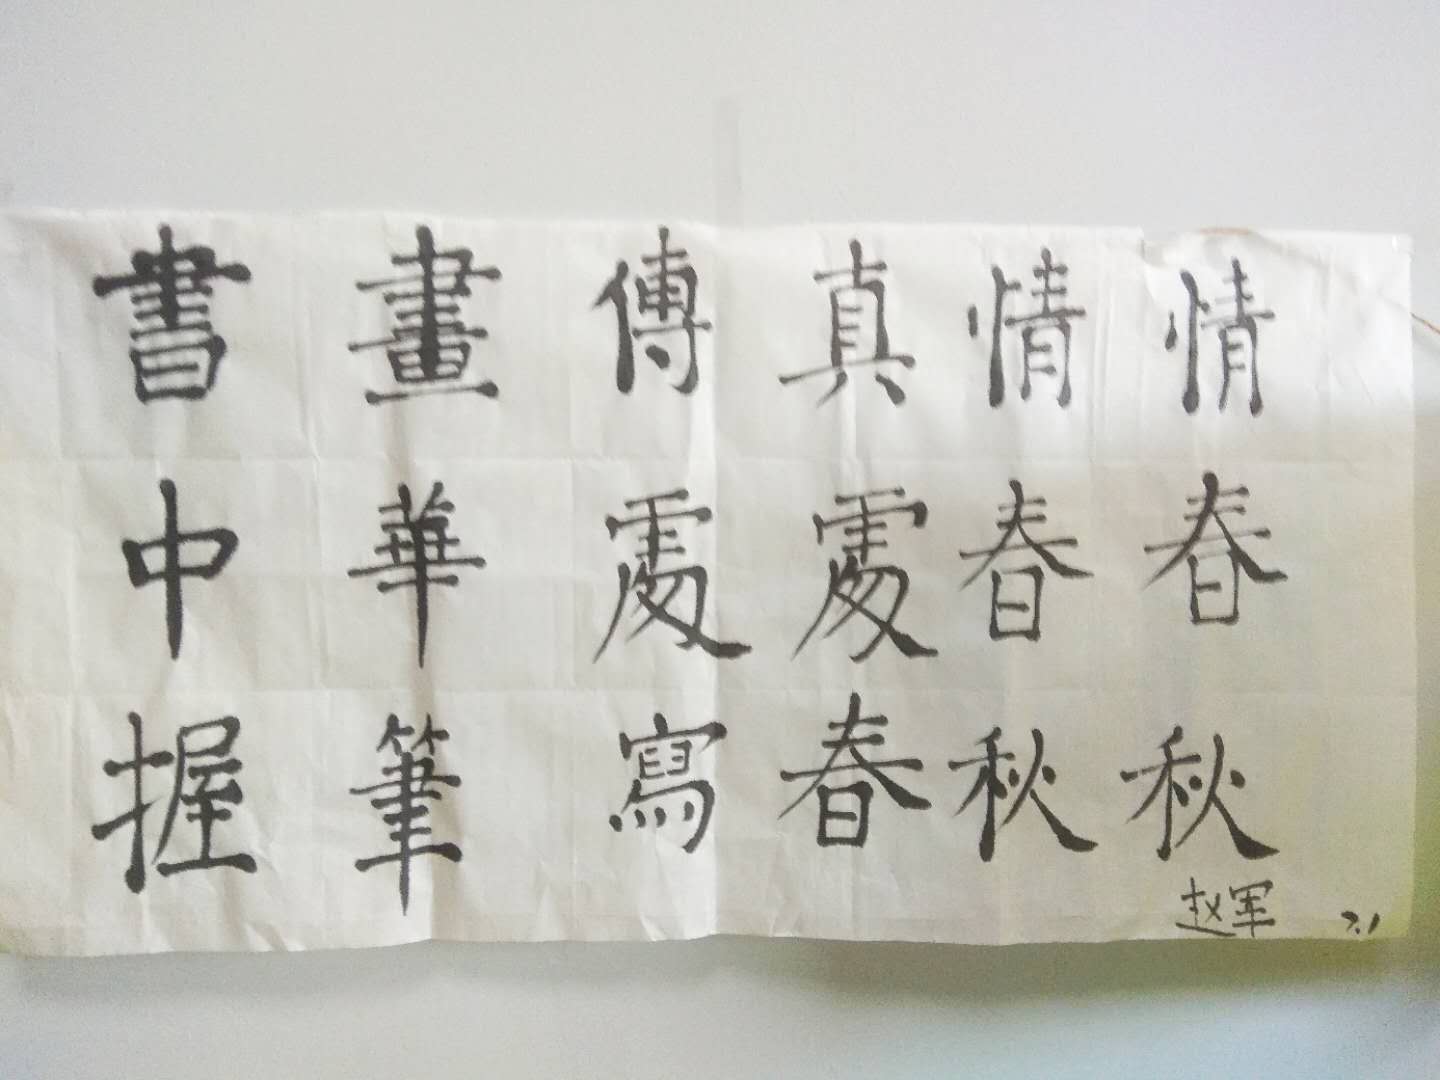 書畫傳真情情
中華處處春春
握筆寫春秋秋
赵军 7.1